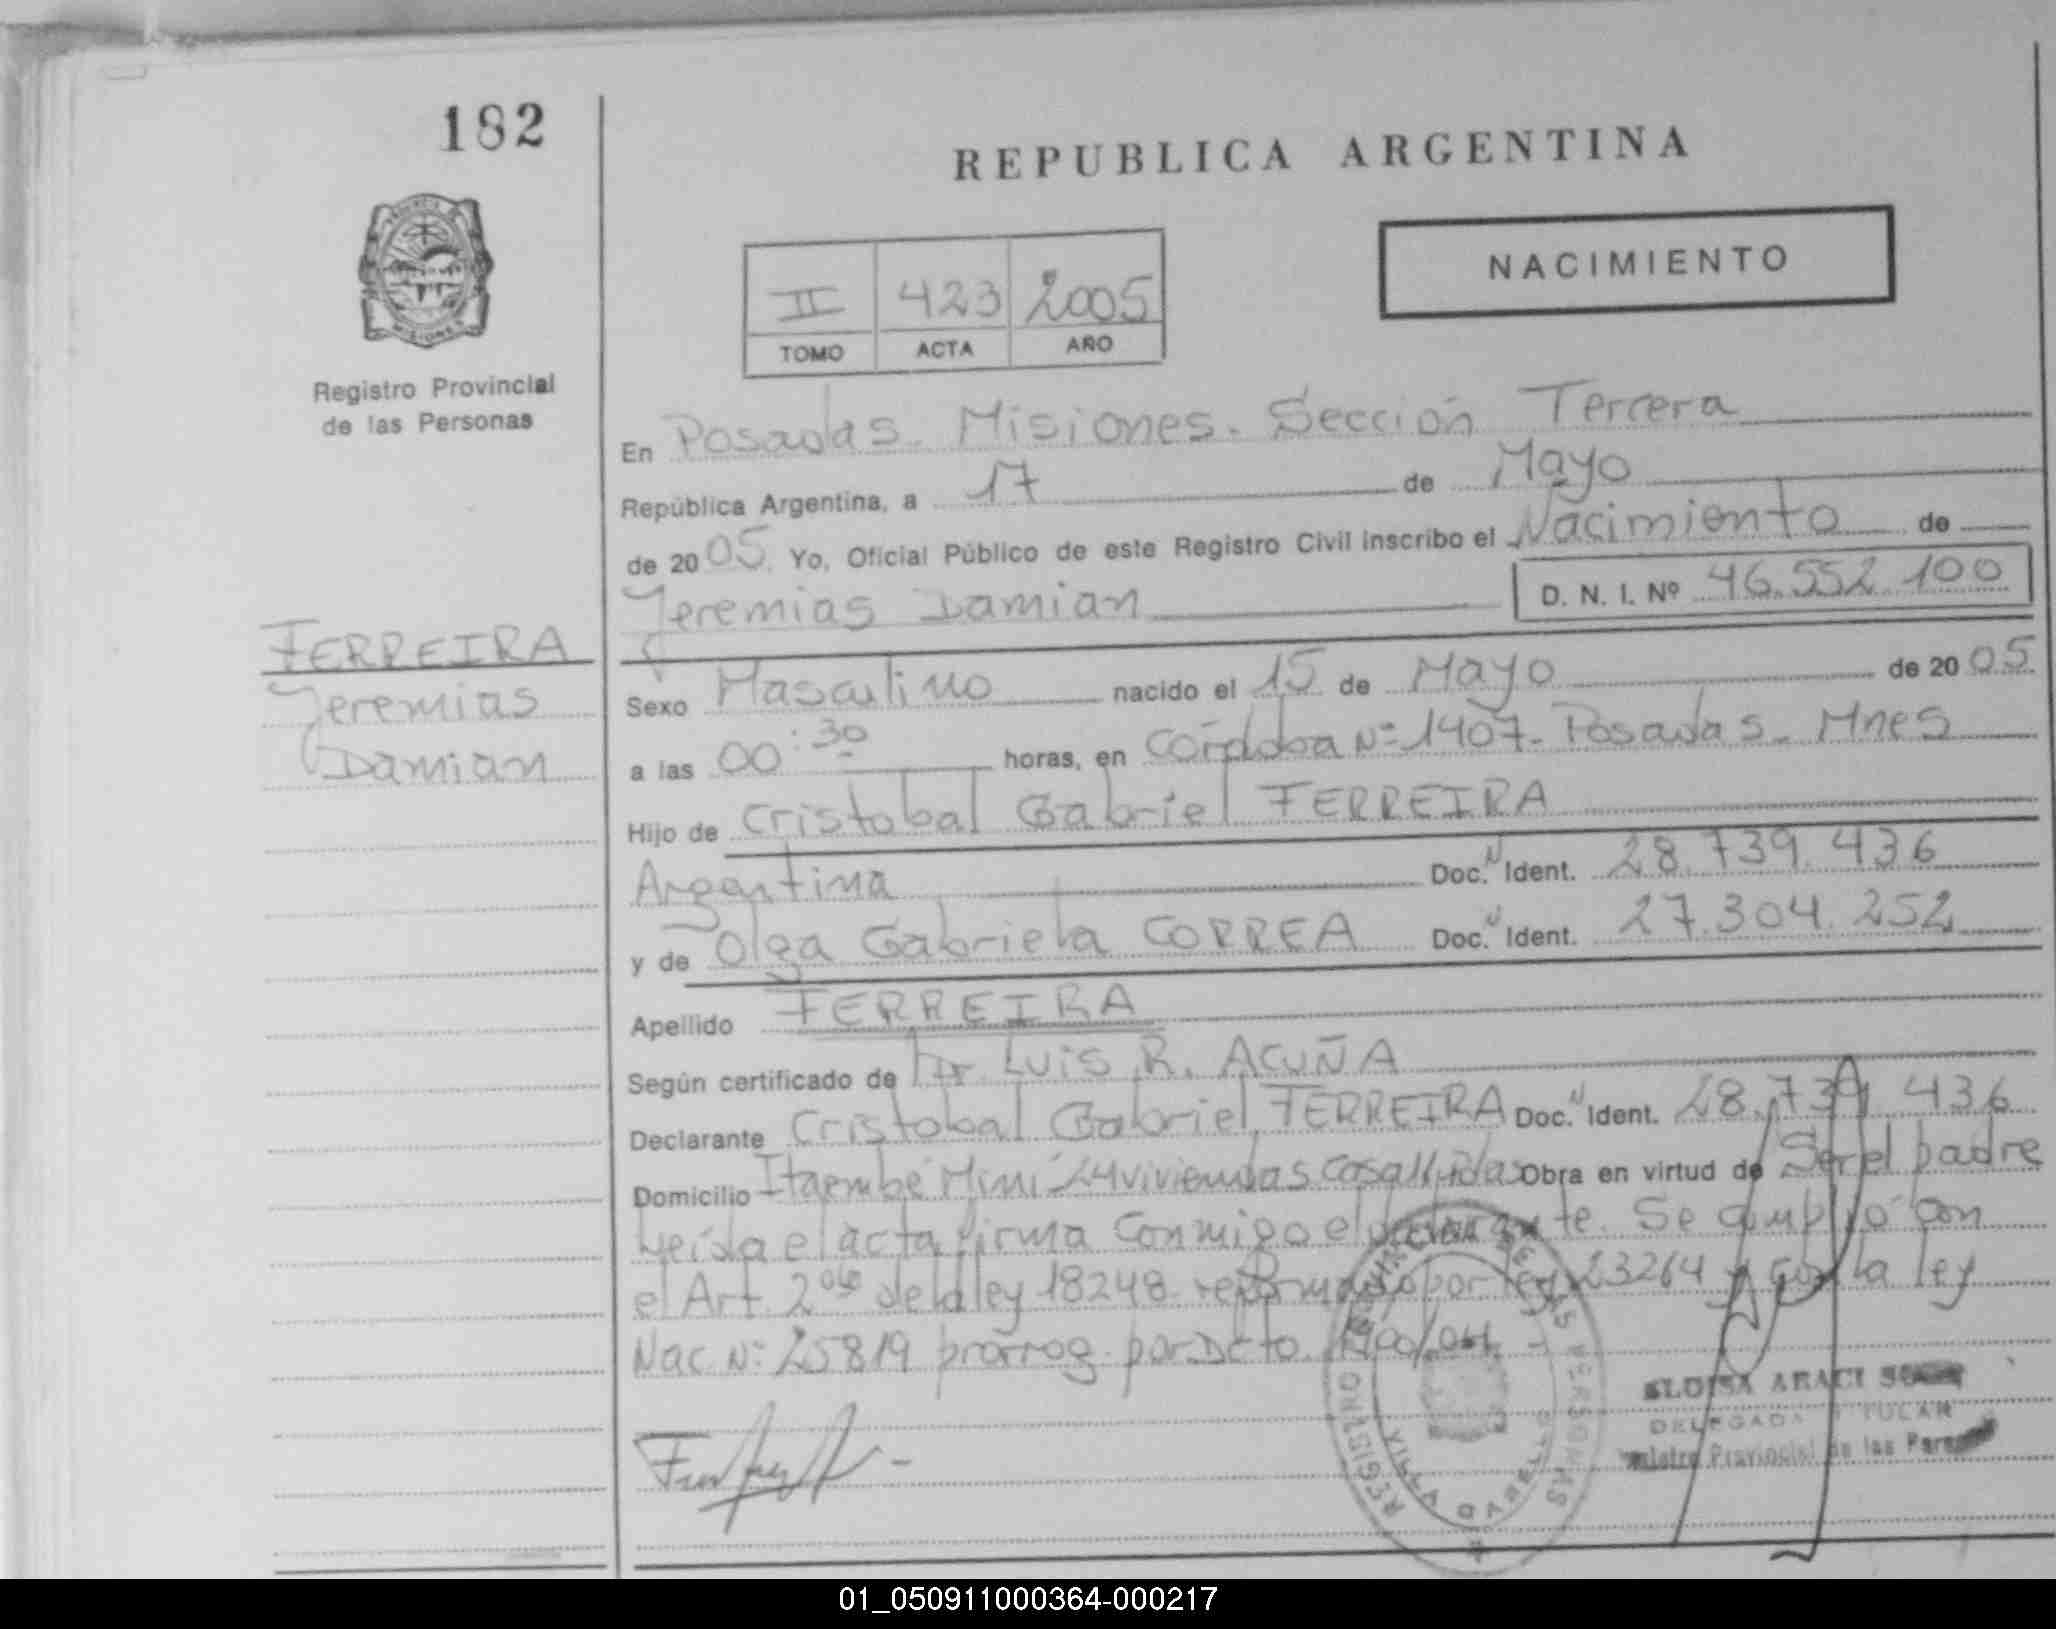 182
REPUBLICA ARGENTINA
NACIMIENTO
II 423 2005
TOMO ACTA AÑO
PROVINCIA DE
MISIONES
Registro Provincial
de las Personas
En Posadas. Misiones. Sección Tercera
República Argentina, a 17 de Mayo
de 2005. Yo, Oficial Público de este Registro Civil inscribo el Nacimiento de
Jeremias Damian D. N. I. Nº 46.552.100
FERREIRA
Jeremias
Damian
Sexo Masculino nacido el 15 de Mayo de 2005
a las 00:30 horas, en Córdoba Nº 1407. Posadas. Mnes
Hijo de Cristobal Gabriel FERREIRA
Argentina Doc. N Ident. 28.739.436
y de Olga Gabriela CORREA Doc. N Ident. 27.304.252
Apellido FERREIRA
Según certificado de Dr. Luis R. ACUÑA
Declarante Cristobal Gabriel FERREIRA Doc. N Ident. 28.739.436
Domicilio Itaembé Miní 24 viviendas casa Obra en virtud de Ser el padre
Leída el acta firma conmigo el declarante. Se cumplió con
el Art. 2do de la ley 18248 reformado por ley 23264 y con la ley
Nac Nº 25819 prorrog. por Dcto.
ELOISA ARACI
DELEGADA TITULAR
Registro Provincial de las Personas
REGISTRO DE LAS PERSONAS
VILLA
01_050911000364-000217